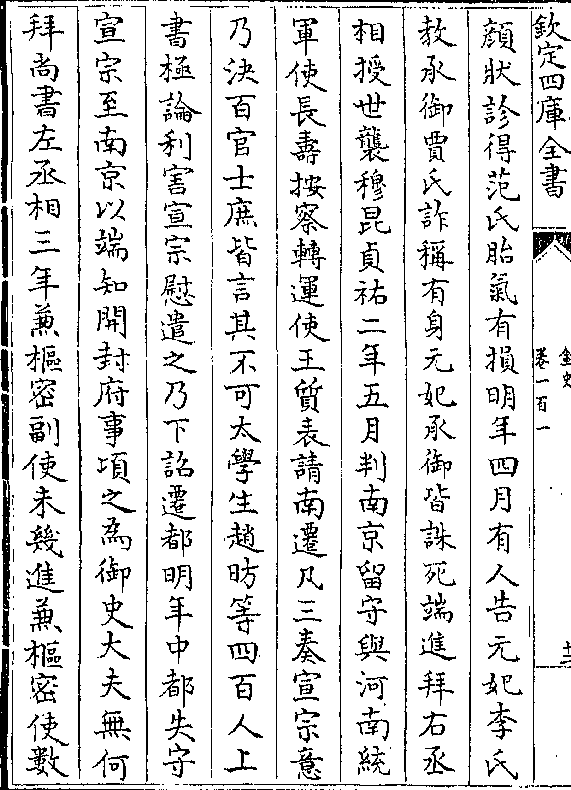 欽定四庫全書
金史
卷一百一
十三
顔狀診得范氏胎氣有損明年四月有人告元妃李氏
教承御賈氏詐稱有身元妃承御皆誅死端進拜右丞
相授世襲穆昆貞祐二年五月判南京留守與河南統
軍使長壽按察轉運使王質表請南遷凡三奏宣宗意
乃決百官士庶皆言其不可太學生趙昉等四百人上
書極論利害宣宗慰遣之乃下詔遷都明年中都失守
宣宗至南京以端知開封府事頃之為御史大夫無何
拜尚書左丞相三年兼樞密副使未幾進兼樞密使數